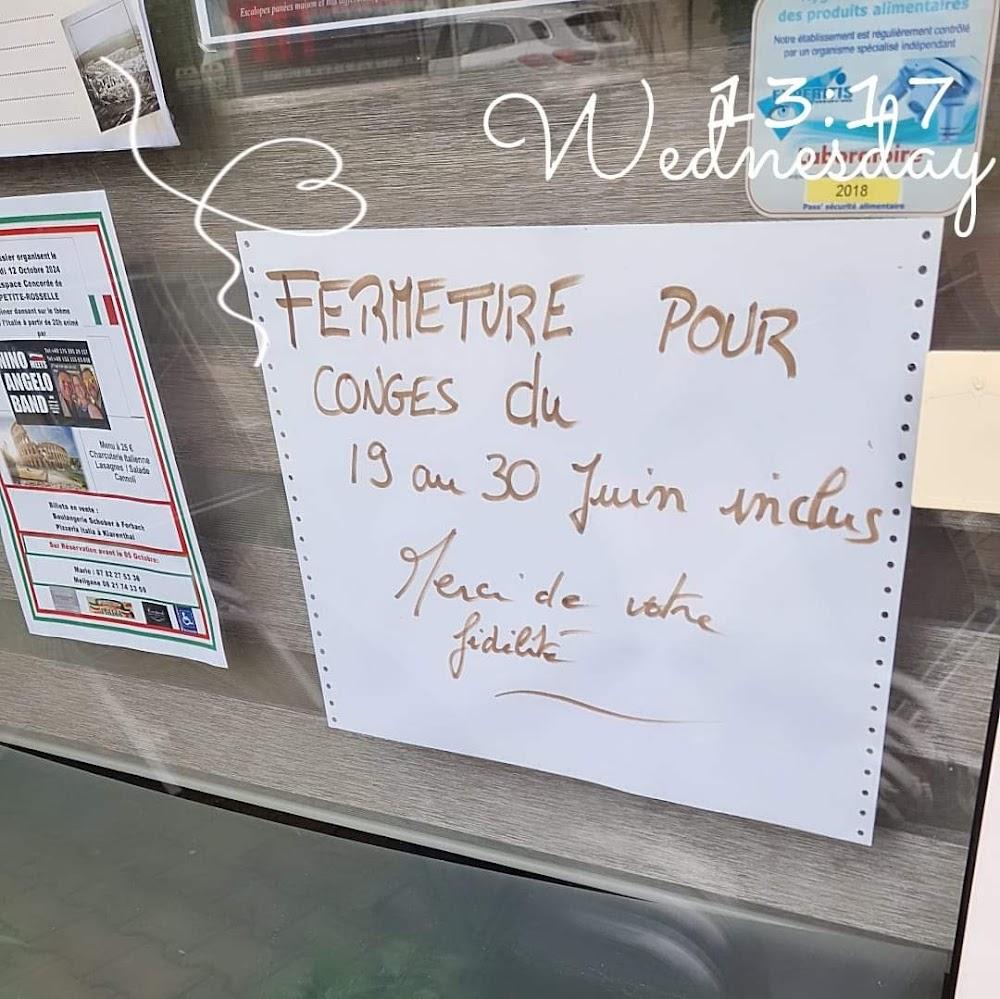 Escalopes panées maison et
des produits alimentaires
Notre établissement est régulièrement contrôlé
par un organisme spécialisé indépendant
13:17
Wednesday
Laboratoire
2018
Pass' sécurité alimentaire
FERMETURE POUR
CONGES du
19 au 30 Juin inclus
Merci de votre
fidélité
organisent le
di 12 Octobre 2024
space Concorde de
PETITE-ROSSELLE
dansant sur le thème
l'Italie à partir de 20h animé
par
NINO MEETS
ANGELO
BAND
Menu à 25 €
Charcuterie Italienne
Lasagnes / Salade
Cannoli
Billets en vente :
Boulangerie Schober à Forbach
Pizzeria Italia à Klarenthal
Sur Réservation avant le 05 Octobre:
Marie : 07 82 27 53 36
Meligane 06 21 74 33 59